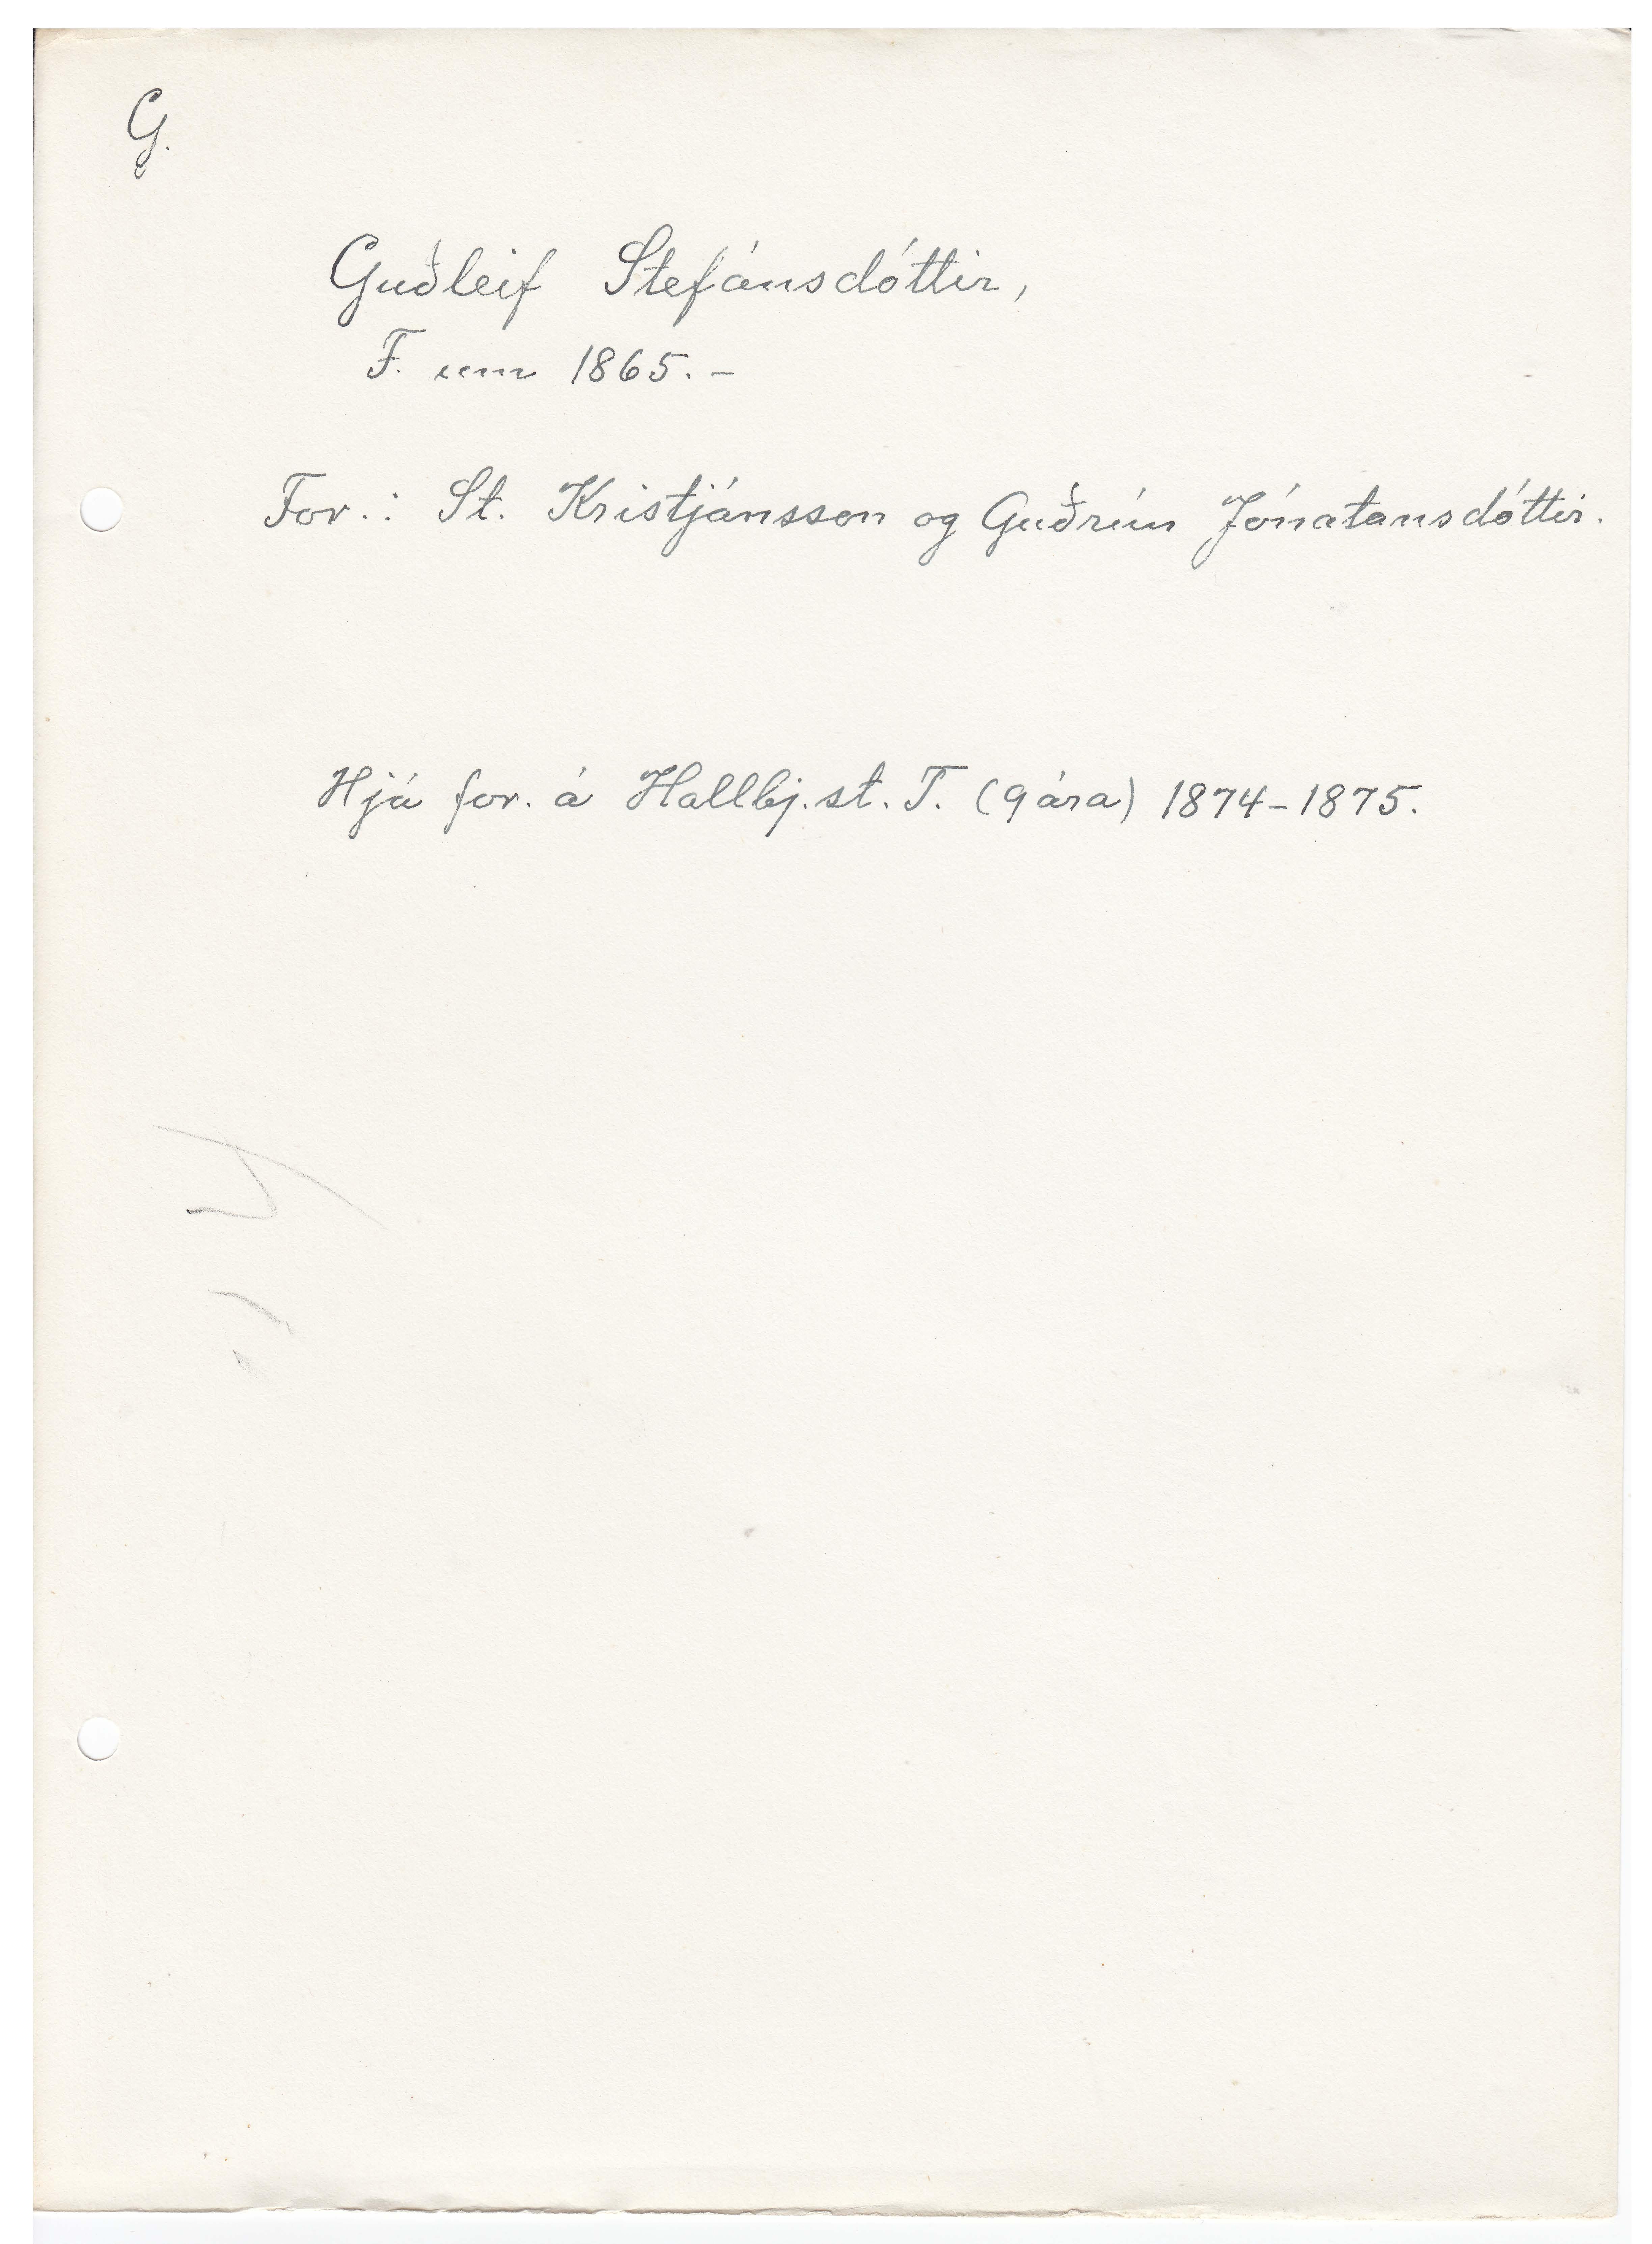 G.
Guðleif Stefánsdóttir,
F. um 1865. -
For.: St. Kristjánsson og Guðrún Jónatansdóttir.
Hjá for. á Hallbj.st. T. (9 ára) 1874-1875.